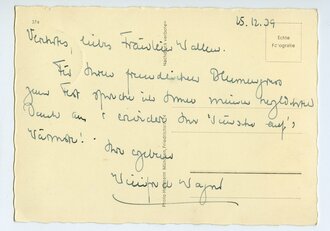 15.12.39
Echte
Fotografie
Verehrtes, liebes Fräulein Wallen.
Für Ihren freundlichen Blumengruss
zum Fest spreche ich Ihnen meinen herzlichsten
Dank aus & erwidere Ihre Wünsche auf's
Wärmste!
Ihre ergebene
Winifred Wagner